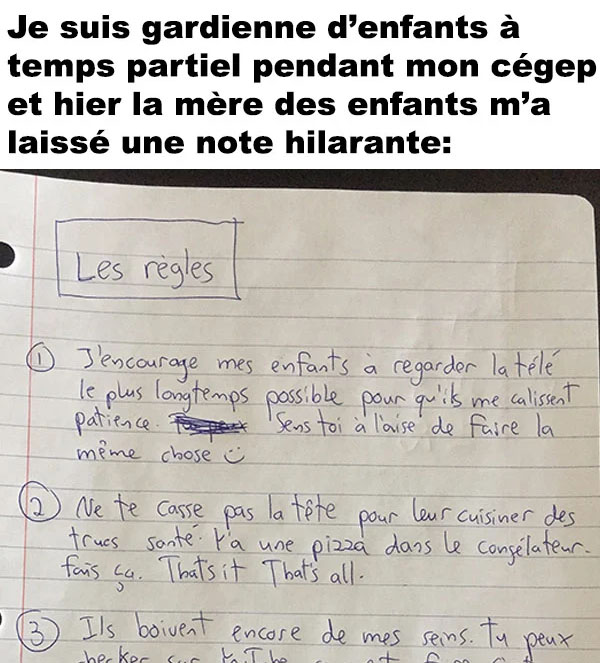 Je suis gardienne d’enfants à
temps partiel pendant mon cégep
et hier la mère des enfants m’a
laissé une note hilarante:
Les règles
① J'encourage mes enfants à regarder la télé
le plus longtemps possible pour qu'ils me calissent
patience. Sens toi à l'aise de faire la
même chose ☺
② Ne te casse pas la tête pour leur cuisiner des
trucs santé. Y'a une pizza dans le congélateur.
fais ça. That's it That's all.
③ Ils boivent encore de mes seins. Tu peux